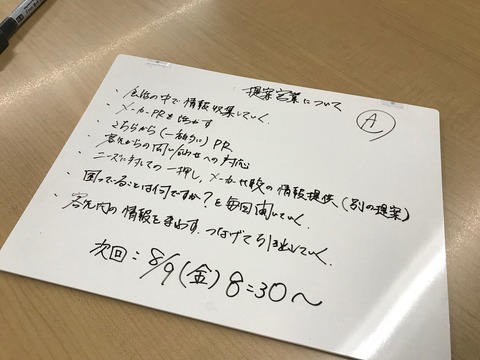 提案営業について
A
・会話の中で情報収集していく.
・メーカーPRを活かす
・こちらから(一方的)PR
・客先からの問い合わせへの対応
・ニーズに対しての一押し、メーカー比較の情報提供、(別の提案)
・困っていることは何ですか?を毎回聞いていく.
・客先内の情報を つなげて引き出していく.
次回:8/9(金)8:30〜